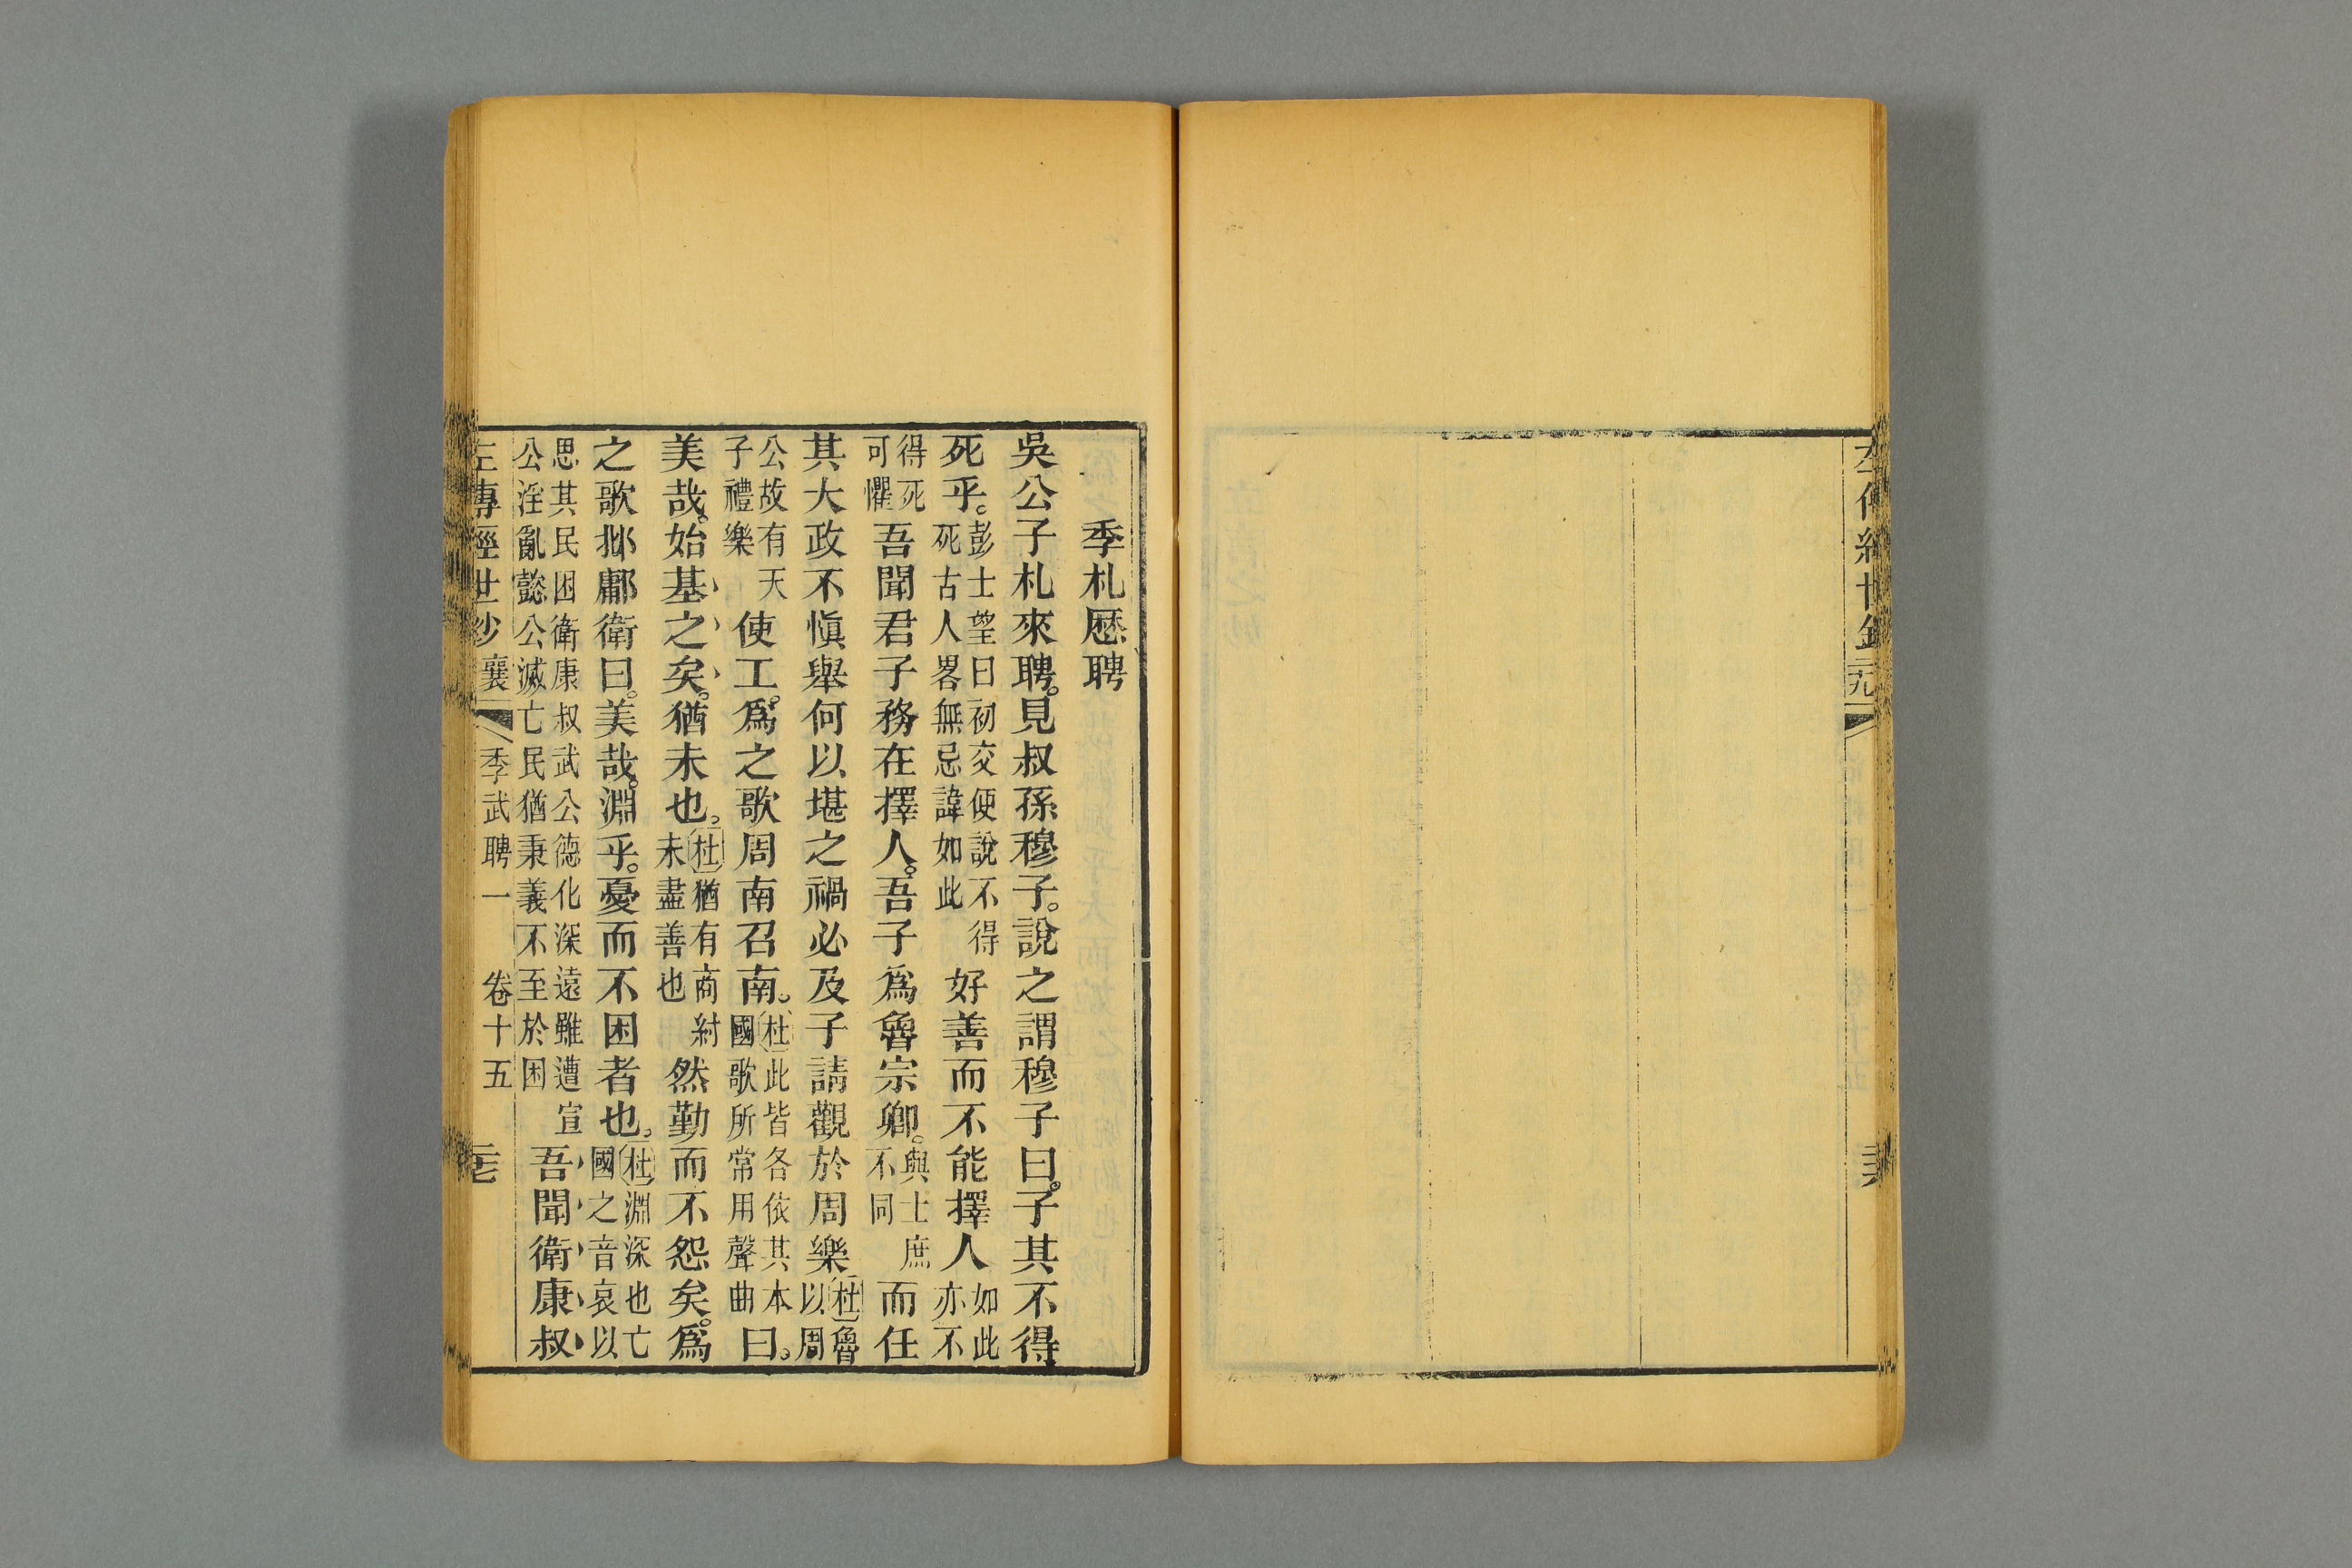 左傳經世鈔
季札歷聘
吳公子札來聘。見叔孫穆子。說之謂穆子曰。子其不得
死乎。彭士望曰初交便說不得死古人畧無忌諱如此好善而不能擇人如此亦不
得死可懼吾聞君子務在擇人。吾子爲魯宗卿。與士庶不同而任
其大政不愼舉何以堪之禍必及子請觀於周樂杜魯以周
公故有天子禮樂使工。爲之歌周南召南。杜此皆各依其本國歌所常用聲曲曰。
美哉。始基之矣。猶未也。杜猶有商紂未盡善也然勤而不怨矣。爲
之歌邶鄘衛曰。美哉。淵乎。憂而不困者也。杜淵深也亡國之音哀以
思其民困衛康叔武公德化深遠雖遭宣公淫亂懿公滅亡民猶秉義不至於困吾聞衛康叔
左傳經世鈔 襄 季武聘一 卷十五